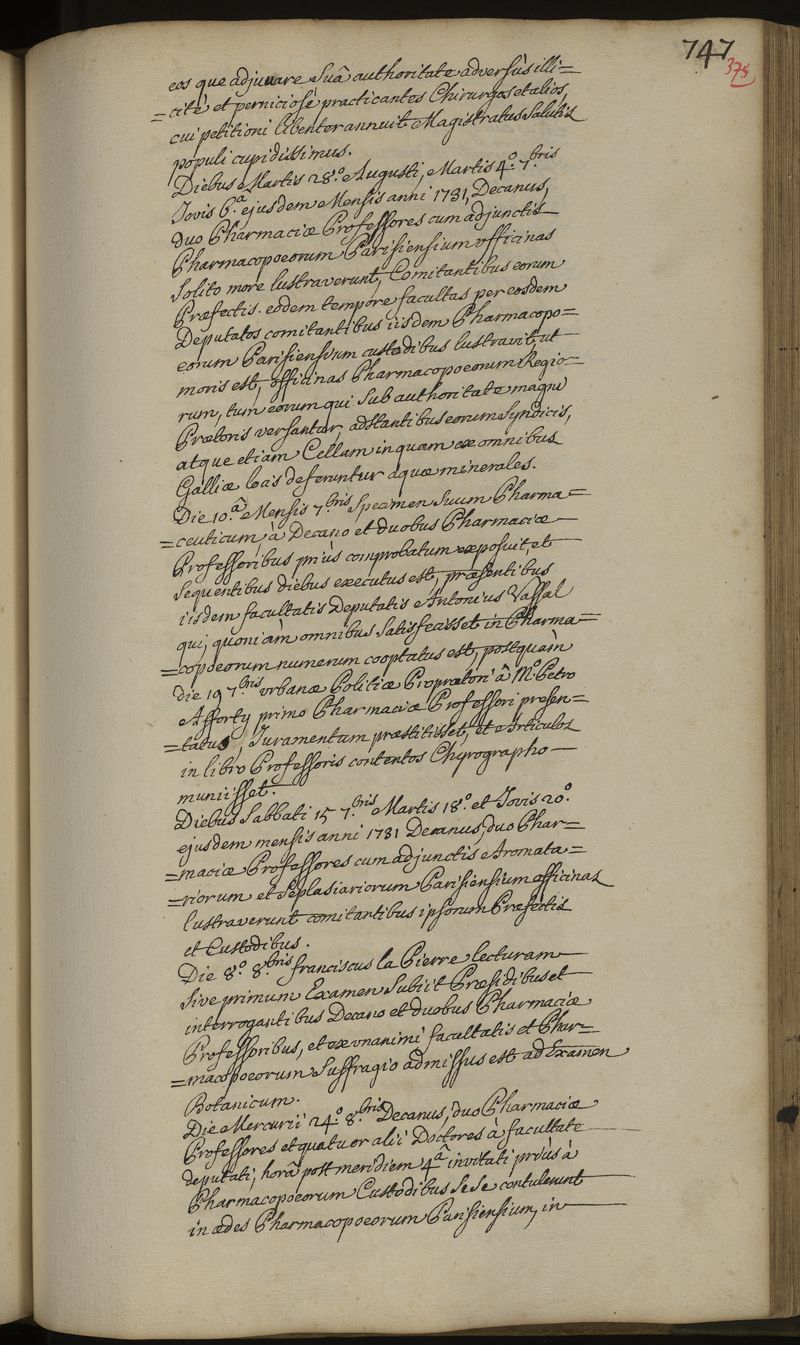 747
375
eos que adjuuare Suâ authoritate adversùs illi=
=citè et perniciosè practicantes Chirurgos et alios,
cui petitioni libenter annuit Magistratus Salutis
populi cupidissimus.
Diebus Martis 28.° Augusti, Martis 4.° 7.bris
Jovis 6.a ejusdem Mensis anni 1731, Decanus,
duo Pharmaciæ Professores cum adjunctis
Pharmacopoeorum Parisiensium officinas
Solito more lustraverunt, Comitantibus eorum
Præfectis. eodem tempore facultas per eosdem
Deputatos comitantibus iisdem Pharmacopo=
eorum Parisiensium custodibus lustravit, ut
moris est, officinas Pharmacopoeorum Regio=
rum, tum eorum qui Sub authoritate magni
Prætoris versantur, adstantibus eorum Syndicis,
atque etiam Cellam in quam ex omnibus
Galliæ locis deferuntur aquæ minerales.
Die 10.â Mensis 7.bris Specimen Suum Pharma=
=ceuticum, à Decano et duobus Pharmaciæ
Professoribus priùs comprobatum exposuit, et
Sequentibus diebus executus est, præsentibus
iisdem facultatis Deputatis Antonius Vassal
qui, quoniàm omnibus Satisfecisset in Pharma=
=copoeorum numerum cooptatus est, postquàm
die 19 7.bris urbanæ Politiæ Proprætori â M.° Petro
Afforty primo Pharmaciæ Professori presen=
=tatus, Juramentum præstitisset, et Articulos
in libro Professoris contentos Chyrographo
muniisset.
Diebus Sabbati 15 7.bris Martis 18.° et Jovis 20.°
ejusdem mensis anni 1731 Decanus, duo Phar=
=maciæ Professores cum adjunctis Aromata=
=riorum et Seplasiariorum Parisiensium officinas
lustraverunt comitantibus ipsorum Præfectis
et Custodibus.
Die 8.° 8.bris franciscus la Pierre lecturam
Sive primum Examen Subiit Præsidibus et
interrogantibus Decano et duobus Pharmaciæ
Professoribus, et ex unanimi facultatis et Phar=
=macopoeorum Suffragio admissus est ad Examen
Botanicum.
Die Mercurii 24.° 8.bris Decanus, duo Pharmaciæ
Professores et quatuor alii Doctores à facultate
deputati, horâ post meridiem 4.â invitati priùs à
Pharmacopoeorum Custodibus Sese contulerunt
in ædes Pharmacopoeorum Parisiensium, in